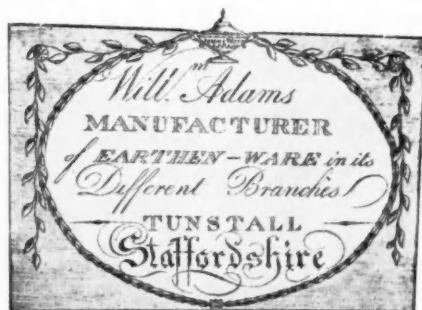 Will.ᵐ Adams
MANUFACTURER
of EARTHEN-WARE in its
Different Branches
TUNSTALL
Staffordshire